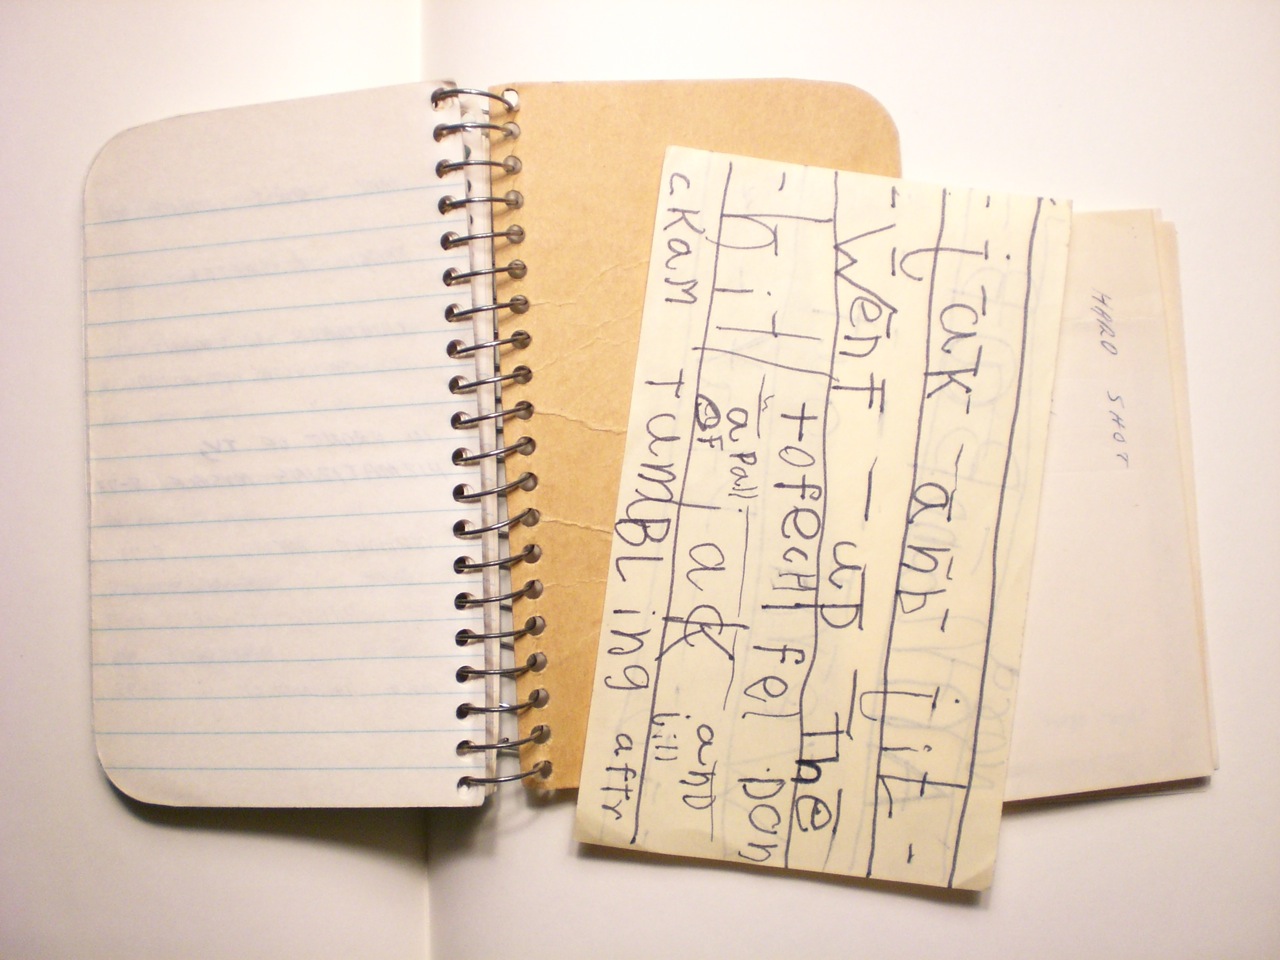 - j-aK-anD-jil-
-WenT-uP The
-hill toFecH Fel Don
a Pall
OF
jaK anD
jill
cKam TumBLing aftr
HARD SHOT